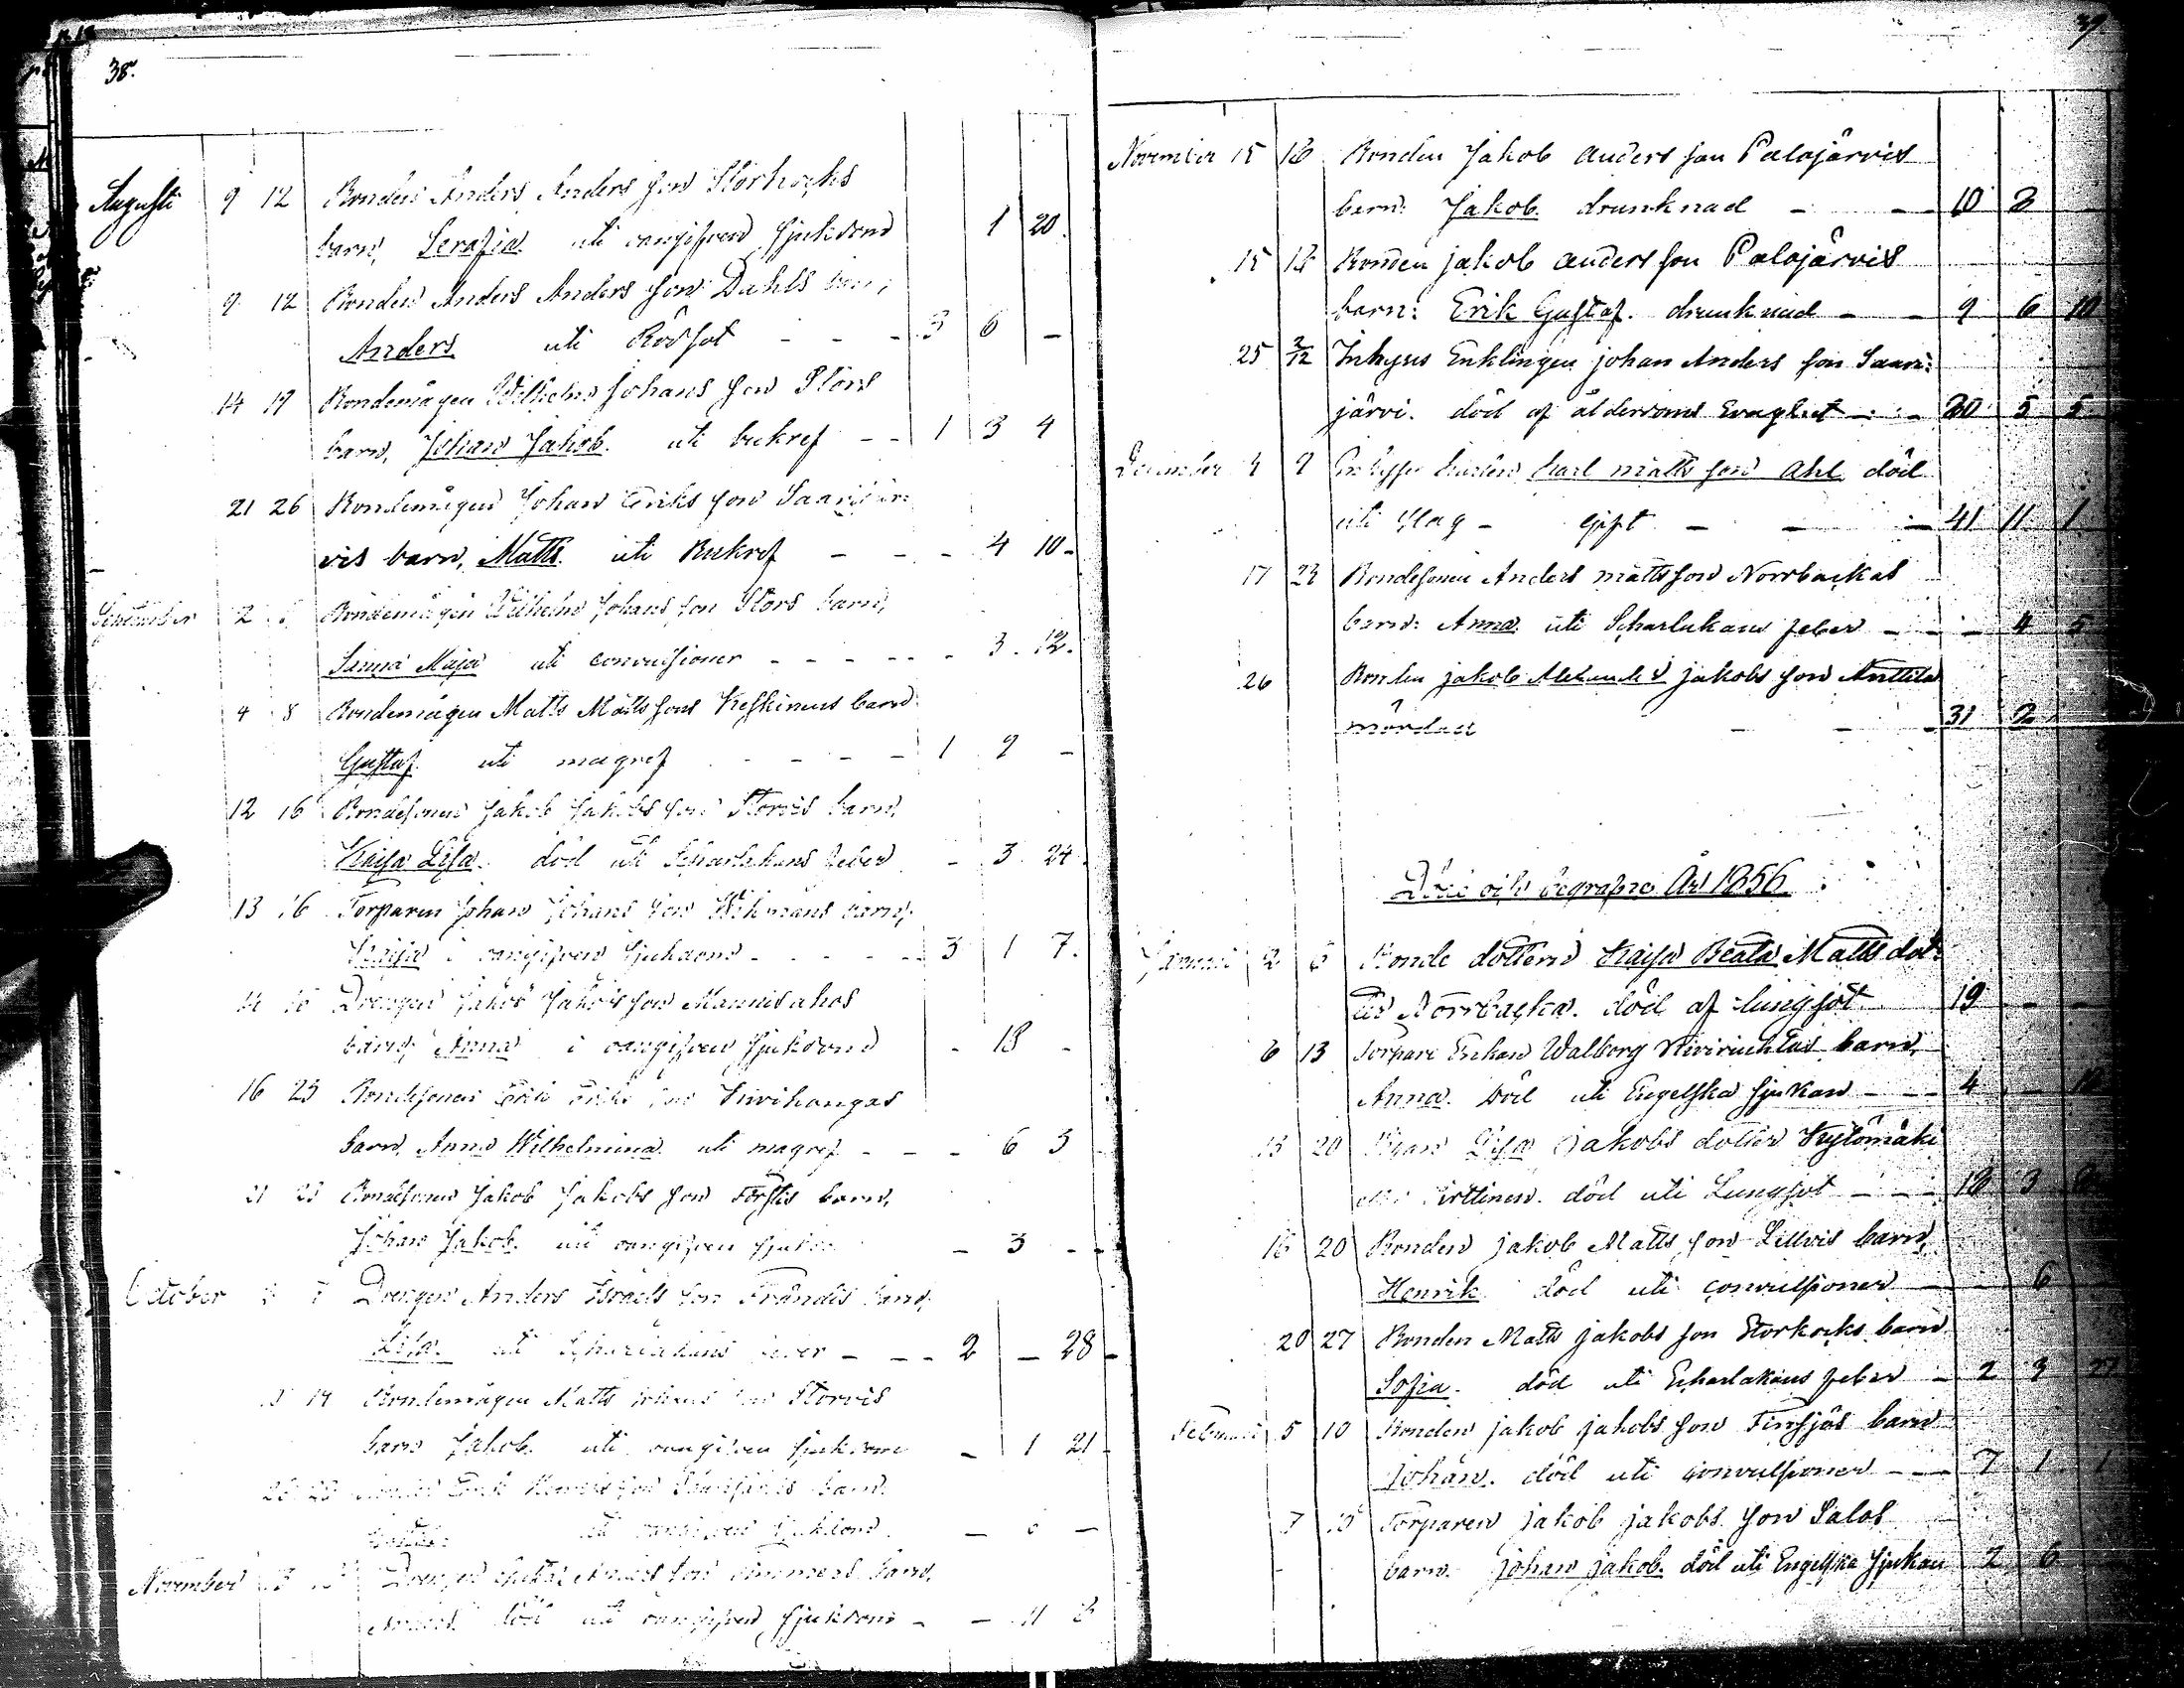 38.
Augusti 9 12 Bonden Anders Andersson Storkocks
barn, Serafia uti oangifven sjukdom 1 20.
9 12 Bonden Anders Andersson Dahls barn,
Anders uti Rödsot - - - 3 6 -
14 19 Bondemågen Wilhelm Johansson Störs
barn, Johan Jakob. uti bukref - - 1 3 4
21 26 Bondemågen Johan Eriksson Saarijär-
vis barn, Matts. uti Bukref - - - 4 10 -
September 2 Bondemågen Wilhelm Johansson Störs barn,
Sanna Maja uti convulsioner - - - - - 3. 12.
4 8 Bondemågen Matts Mattssons Keskinens barn
Gustaf uti magref - - - - 1 9 -
12 16 Bondesonen Jakob Jakobsson Storvis barn,
Kaisa Lisa. död uti Scharlakans feber - 3. 24.
13 16 Torparen Johan Johansson Wikmans barn,
Kaisa i oangifven sjukdom - - - - - 3 1 7.
16 Drengen Jakob Jakobsson Mannisahos
barn, Anna i oangifven sjukdom - 18 -
16 23 Bondesonen Erik Eriksson Kivikangas
barn, Anna Wilhelmina uti magref - - - 6 3
21 23 Bondesonen Jakob Jakobsson Förstis barn,
Johan Jakob. uti oangifven sjukdom - 3 - -
October Drengen Anders Israelsson Frändis barn,
Lisa uti Scharlakans feber - - - 2 - 28 -
14 Bondemågen Matts Storvis
barn Jakob. uti oangifven sjukdom - 1 21 -
Erik barn.
uti oangifven sjukdom. - -
November Drengen barn,
död uti oangifven sjukdom - - 11
39.
November 15 18 Bonden Jakob Andersson Palojärvis
barn: Jakob drunknad - - 10 8
15 18 Bonden Jakob Andersson Palojärvis
barn: Erik Gustaf. drunknad - - 9 6 10
25 2/12 Inhyses Enklingen Johan Andersson Saari-
järvi. död af ålderdoms svaghet - - - 80 5 5
December 4 9 Karl Mattsson Ahl död
uti Slag - gift - - - 41 11 1
17 23 Bondesonen Anders Mattsson Norrbackas
barn: Anna uti Scharlakans feber - - - 4 5
26 Bonden Jakob Alexander Jakobsson Anttila
mördad - - - 31 2
Döde och begrafne År 1856.
Januari 2 6 Bonde dottern Kaisa Beata Mattsdot-
ter Norrbacka. död af lungsot 19 - -
6 13 Torpare Enkan Walborg barn,
Anna. Död uti Engelska sjukan - - - 4 -
13 20 Pigan Lisa Jakobs dotter Kylömäki
död uti Lungsot - - - 18 3
18 20 Bonden Jakob Mattsson Lillvis barn,
Henrik död uti convulsioner - - 6
20 27 Bonden Matts Jakobsson Storkocks barn
Sofia. död uti Scharlakans feber - 2 3 27
Februari 5 10 Bonden Jakob Jakobsson Finsjös barn
Johan. död uti convulsioner - - - 7 1 1
7 10 Torparen Jakob Jakobsson Salos
barn. Johan Jakob. död uti Engelska Sjukan 2 6